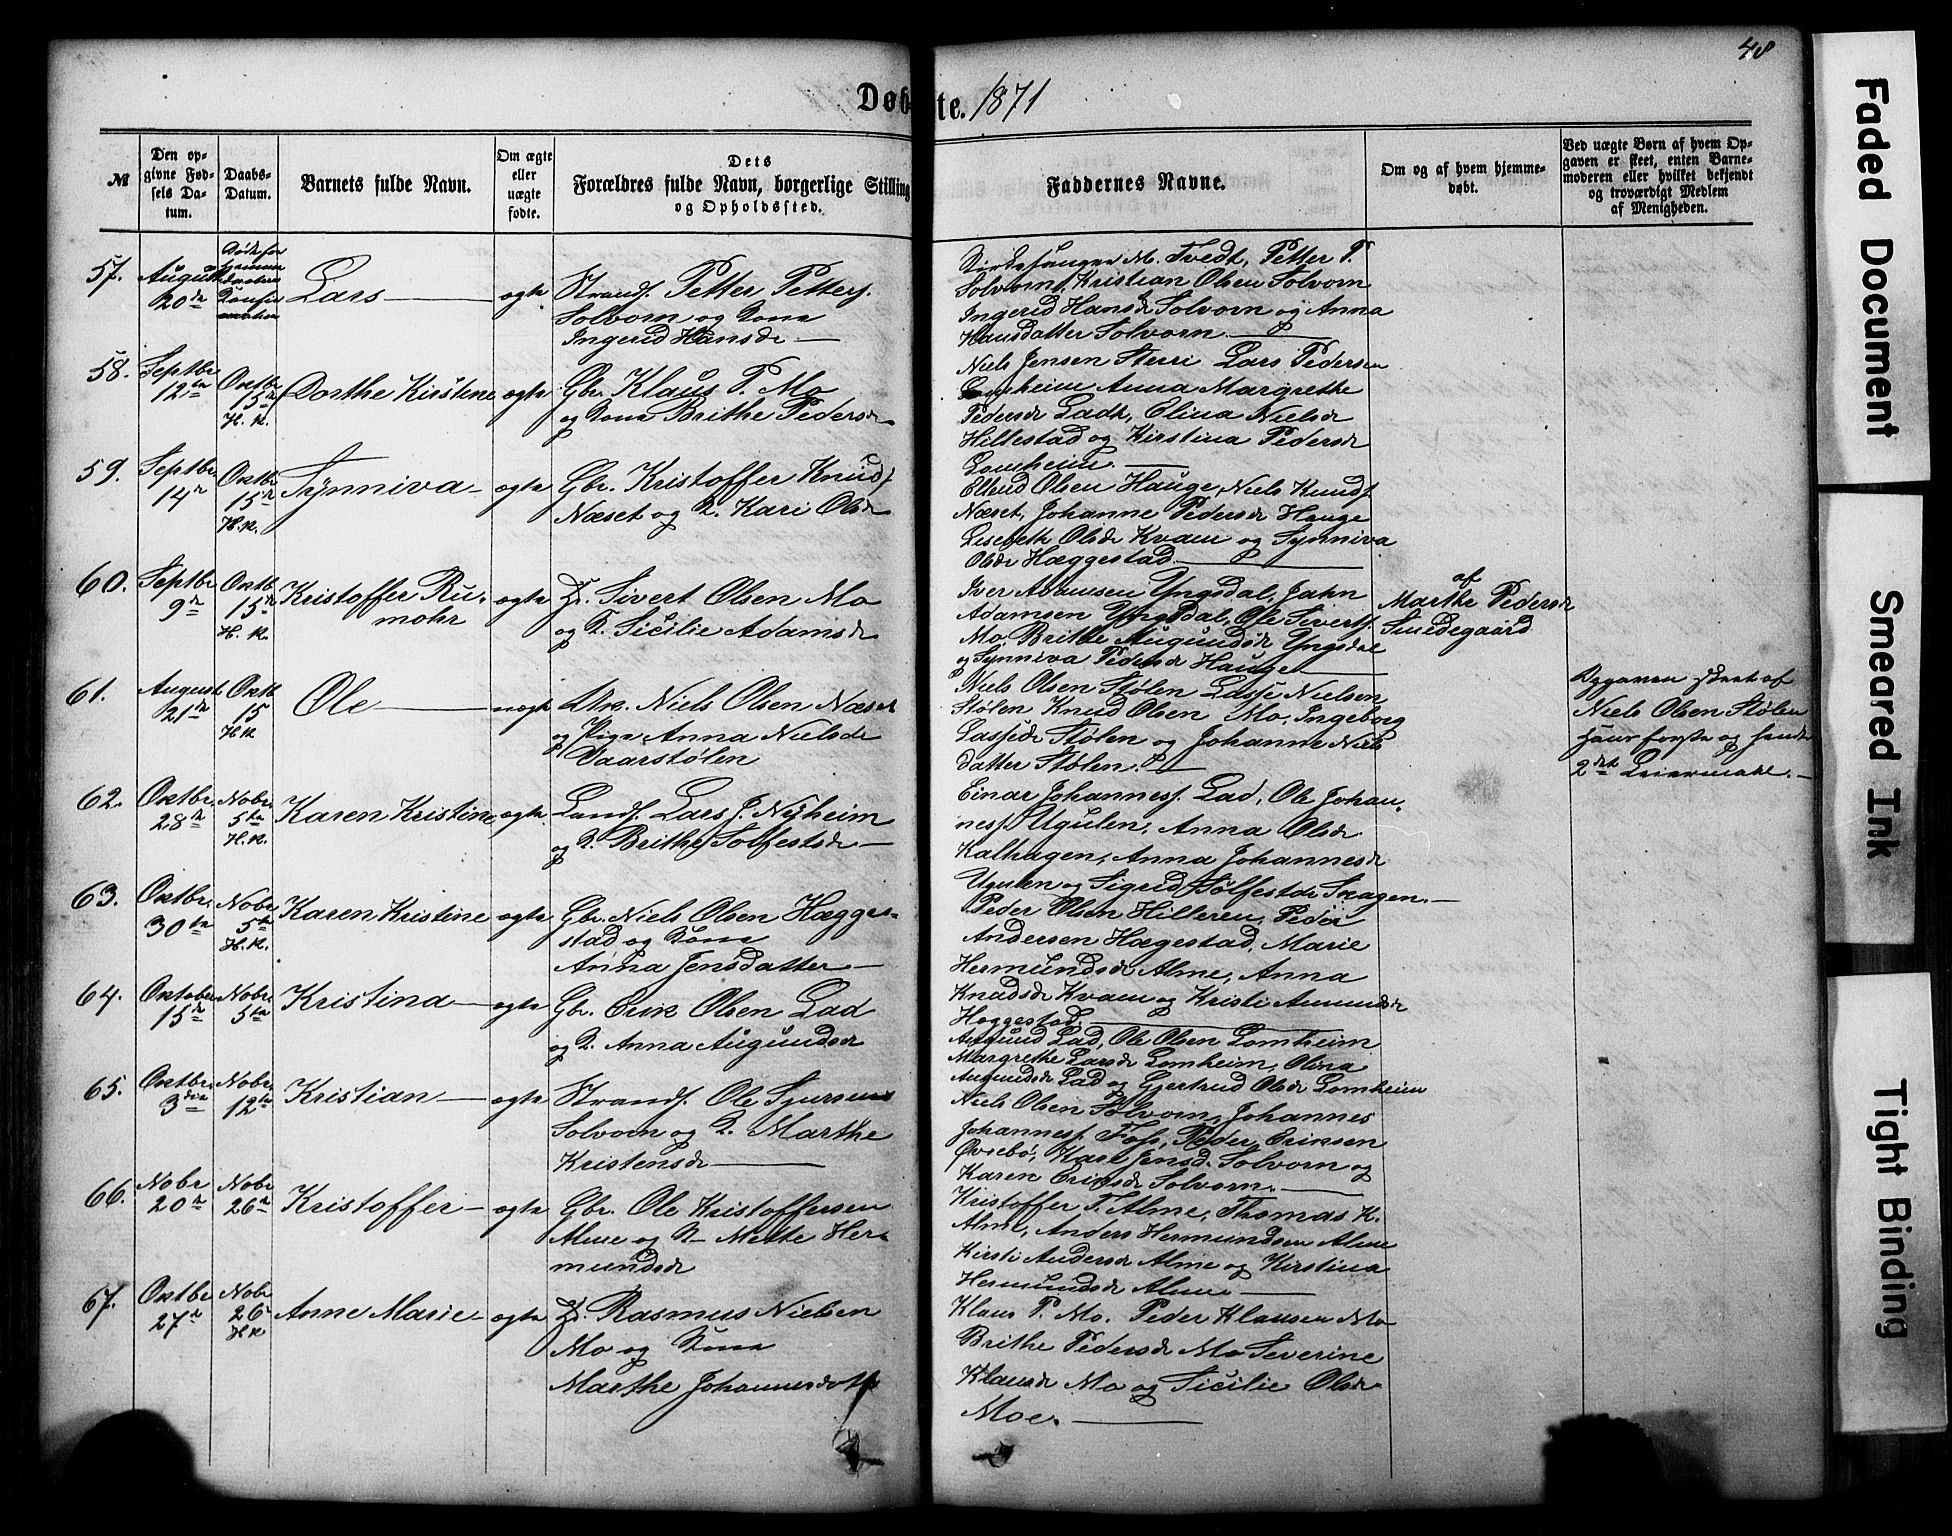 48
Døbte. 1871
№
Den op-
givne Fød-
sels Da-
tum.
Daabs-
Datum.
Barnets fulde Navn.
Om ægte
eller
uægte
fødte.
Dets
Forældres fulde Navn, borgerlige Stilling
og Opholdssted.
Faddernes Navne.
Om og af hvem hjemme-
døbt.
Ved uægte Børn af hvem Op-
gaven er skeet, enten Barne-
moderen eller hvilket bekjendt
og troværdigt Medlem
af Menigheden.
57.
August
20de
Døde før
hjemme
daabens
Konfir
mation
Lars
egte
Strands. Petter Petters.
Solvorn og Kone
Ingerid Hansdr
Kirkesanger M. Tvedt, Petter P.
Solvorn, Kristian Olsen Solvorn
Ingerid Hansdr Solvorn og Anna
Hansdatter Solvorn
58.
Septbr
12te
Oktbr
15de
H. K.
Dorthe Kirstine
egte
Gbr. Klaus P. Mo
og Kone Brithe Pedersdr
Niels Jensen Sterri Lars Pedersen
Lomheim Anna Margrethe
Pedersdr Ladt, Elina Nielsdr
Hillestad og Kirstina Pedersdr
Lomheim.
59.
Septbr
14de
Oktbr
15de
H. K.
Synniva
egte
Gbr. Kristoffer Knuds.
Næset og K. Kari Olsdr
Ellend Olsen Hauge, Niels Knuds.
Næset, Johanne Pedersdr Hauge
Lisebeth Olsdr Kvam og Synniva
Olsdr Hæggestad
60.
Septbr
9de
Oktbr
15de
H. K.
Kristoffer Ru-
mohr
egte
Sivert Olsen Mo
og K. Sicilie Adamsdr
Iver Adamsen Yngsdal, Jahn
Adamsen Yngsdal, Ole Siverts.
Mo, Brithe Augundsdr Yngsdal
og Synniva Pedersdr Hauge
af
Marthe Pedersdr
Smedegaard
61.
August
21de
Oktb
15
H K
Ole
uegte
Niels Olsen Næset
og Pige Anna Nielsdr
Vaarstølen
Niels Olsen Stølen Lasse Nielsen
Stølen Knud Olsen Mo, Ingeborg
Lassedr Stølen og Johanne Niels
datter Stølen.
Opgaven skeet af
Niels Olsen Stølen
hans første og hendes
2det Leiermaal.
62.
Oktbr.
28de
Nobr.
5te
H. K.
Karen Kristine
egte
Lands. Lars J. Nyheim
og K. Brithe Solfestsdr
Einar Johanness. Lad, Ole Johan-
ness. Ugulen, Anna Olsdr
Kalhagen, Anna Johannesdr
Ugulen og Sigrid Solfestdr Snagen.
63.
Oktbr.
30te
Nobr
5te
H. K.
Karen Kristine
egte
Gbr. Niels Olsen Hægge-
stad og Kone
Anna Jensdatter
Peder Olsen Hilleren, Peder
Andersen Hægestad, Marie
Hermundsdr Alme, Anna
Knudsdr Kvam og Kristi Amundsdr
Heggestad.
64.
Oktober
15de
Nobr.
5te
Kristina
egte
Gbr. Erik Olsen Lad
og K. Anna Augundsdr
Augund Lad, Ole Olsen Lomheim
Margrethe Larsdr Lomheim, Olina
Augundsdr Lad og Gjertrud Olsdr Lomheim
65.
Oktbr.
3die
Nobr.
12te
Kristian
egte
Strands. Ole Sjursen
Solvorn og K. Marthe
Kristensdr
Niels Olsen Solvorn, Johannes
Johanness. Foss, Peder Eriksen
Øvrebø, Kari Jensd. Solvorn og
Karen Eriksdr Solvorn.
66.
Nobr
20de
Nobr
26de
Kristoffer
egte
Gbr. Ole Kristoffersen
Alme og K Mette Her-
mundsdr
Kristoffer T. Alme, Thomas K.
Alme, Anders Hermundsen Alme
Kirsti Andersdr Alme og Kirstina
Hermundsdr Alme
67.
Oktbr
27de
Nobr
26
H K
Anne Marie
egte
Rasmus Nielsen
Mo og Kone
Marthe Johannesdatt
Klaus P. Mo. Peder Klausen Mo
Brithe Pedersdr Mo Severine
Klausdr Mo og Sicilie Olsdr
Moe.
Faded Document
Smeared Ink
Tight Binding